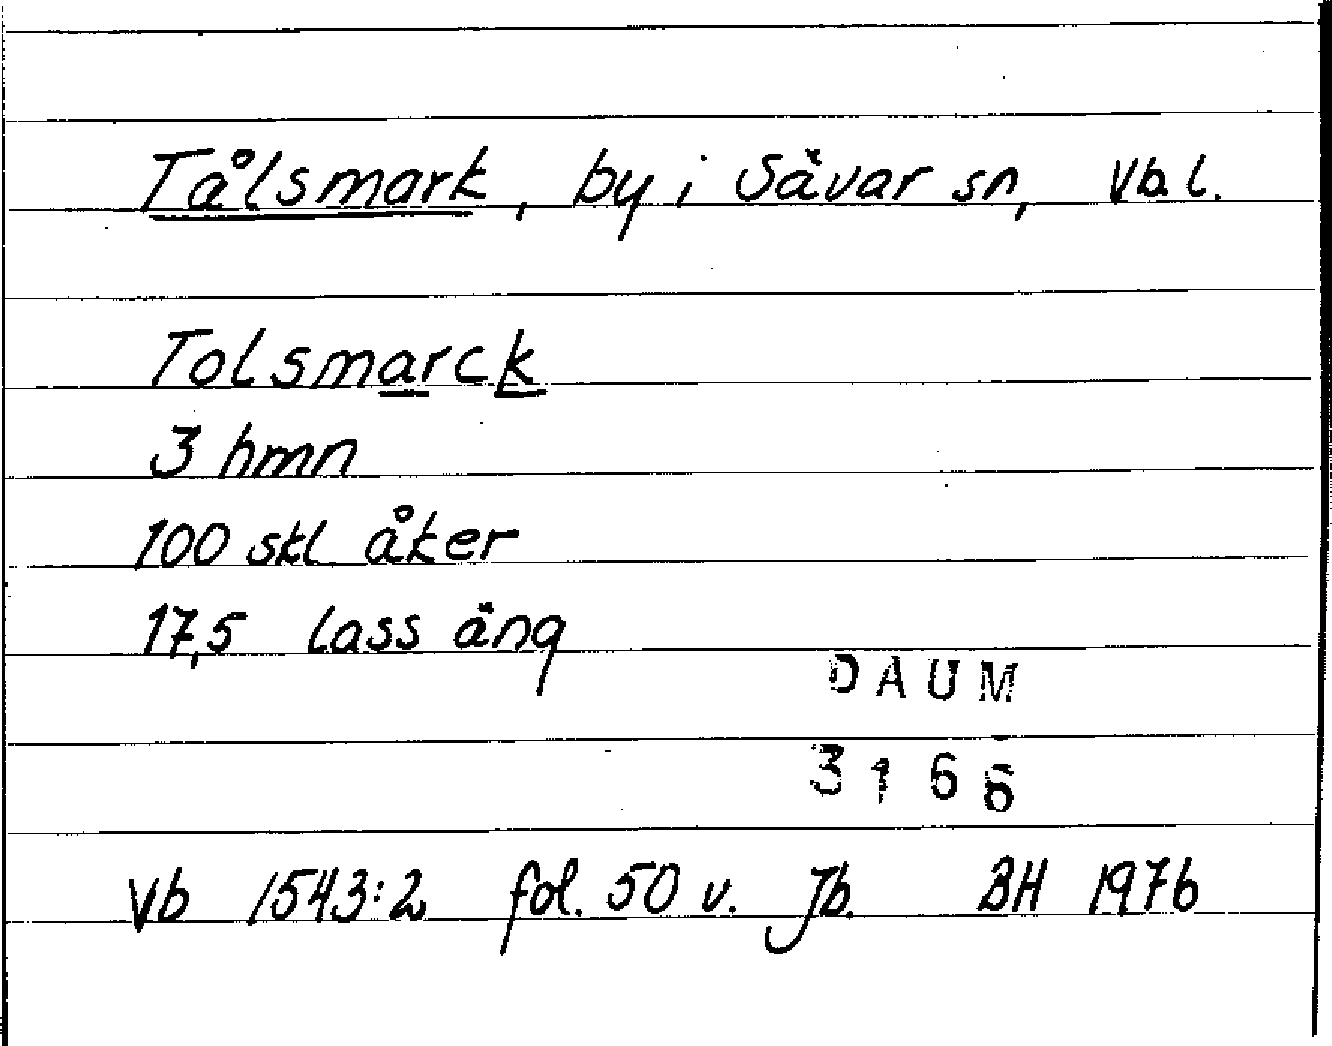 Tålsmark, by i Sävar sn, Vb l.
Tolsmarck
3 hmn
100 skl åker
17,5 lass äng
DAUM
3166
Vb 1543:2 fol. 50 v. Jb. BH 1976